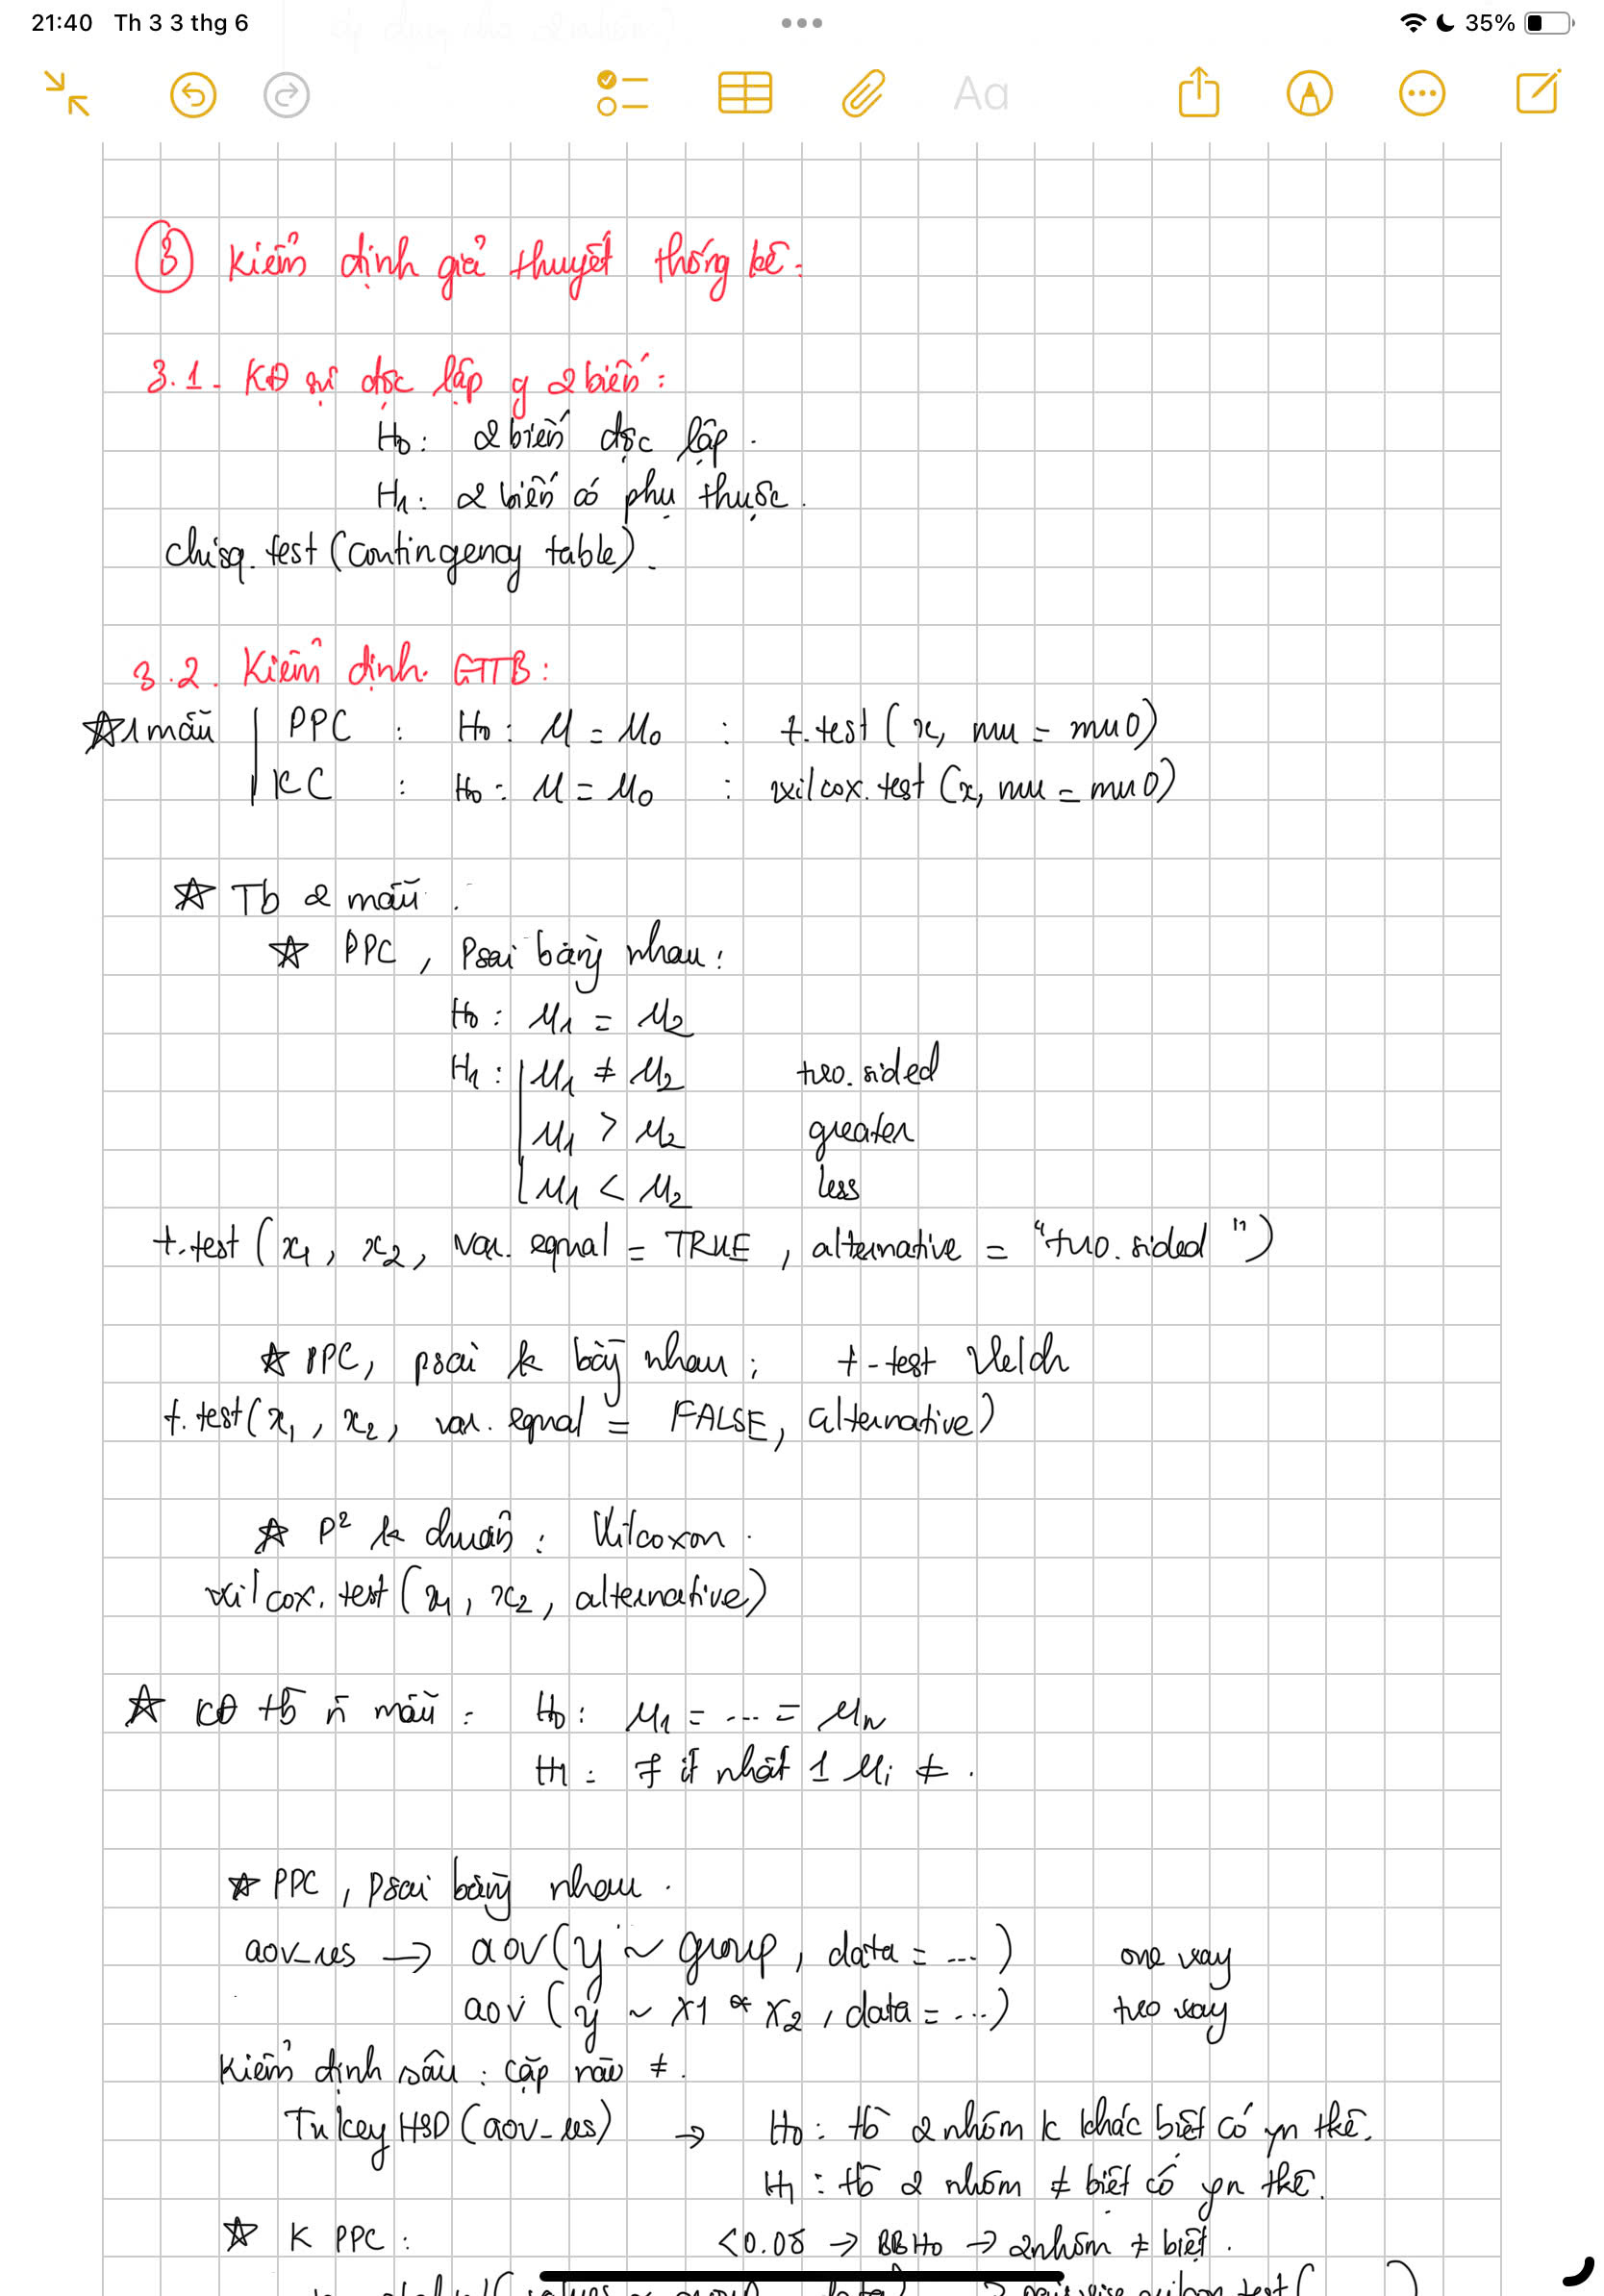 21:40 Th 3 3 thg 6
35%
Aa
③ Kiểm định giả thuyết thống kê:
3.1. KĐ sự độc lập g 2 biến:
H0: 2 biến độc lập.
H1: 2 biến có phụ thuộc.
chisq.test(contingency table).
3.2. Kiểm định GTTB:
☆ 1 mẫu | PPC : H0: μ = μ0 : t.test(x, mu = mu0)
KC : H0: μ = μ0 : wilcox.test(x, mu = mu0)
☆ Tb 2 mẫu.
☆ PPC, Psai bằng nhau:
H0: μ1 = μ2
H1: μ1 ≠ μ2 two.sided
μ1 > μ2 greater
μ1 < μ2 less
t.test(x1, x2, var.equal = TRUE, alternative = "two.sided")
☆ PPC, psai k bằng nhau: t-test Welch
t.test(x1, x2, var.equal = FALSE, alternative)
☆ P² k chuẩn: Wilcoxon.
wilcox.test(x1, x2, alternative)
☆ KĐ tb n mẫu: H0: μ1 = ... = μn
H1: ∃ ít nhất 1 μi ≠.
☆ PPC, Psai bằng nhau.
aov_res → aov(y ~ group, data = ...) one way
aov(y ~ x1 * x2, data = ...) two way
Kiểm định sâu: cặp nào ≠.
TukeyHSD(aov_res) → H0: tb 2 nhóm k khác biệt có yn tkê.
H1: tb 2 nhóm ≠ biệt có yn tkê.
☆ K PPC: <0.05 → BBH0 → 2 nhóm ≠ biệt.